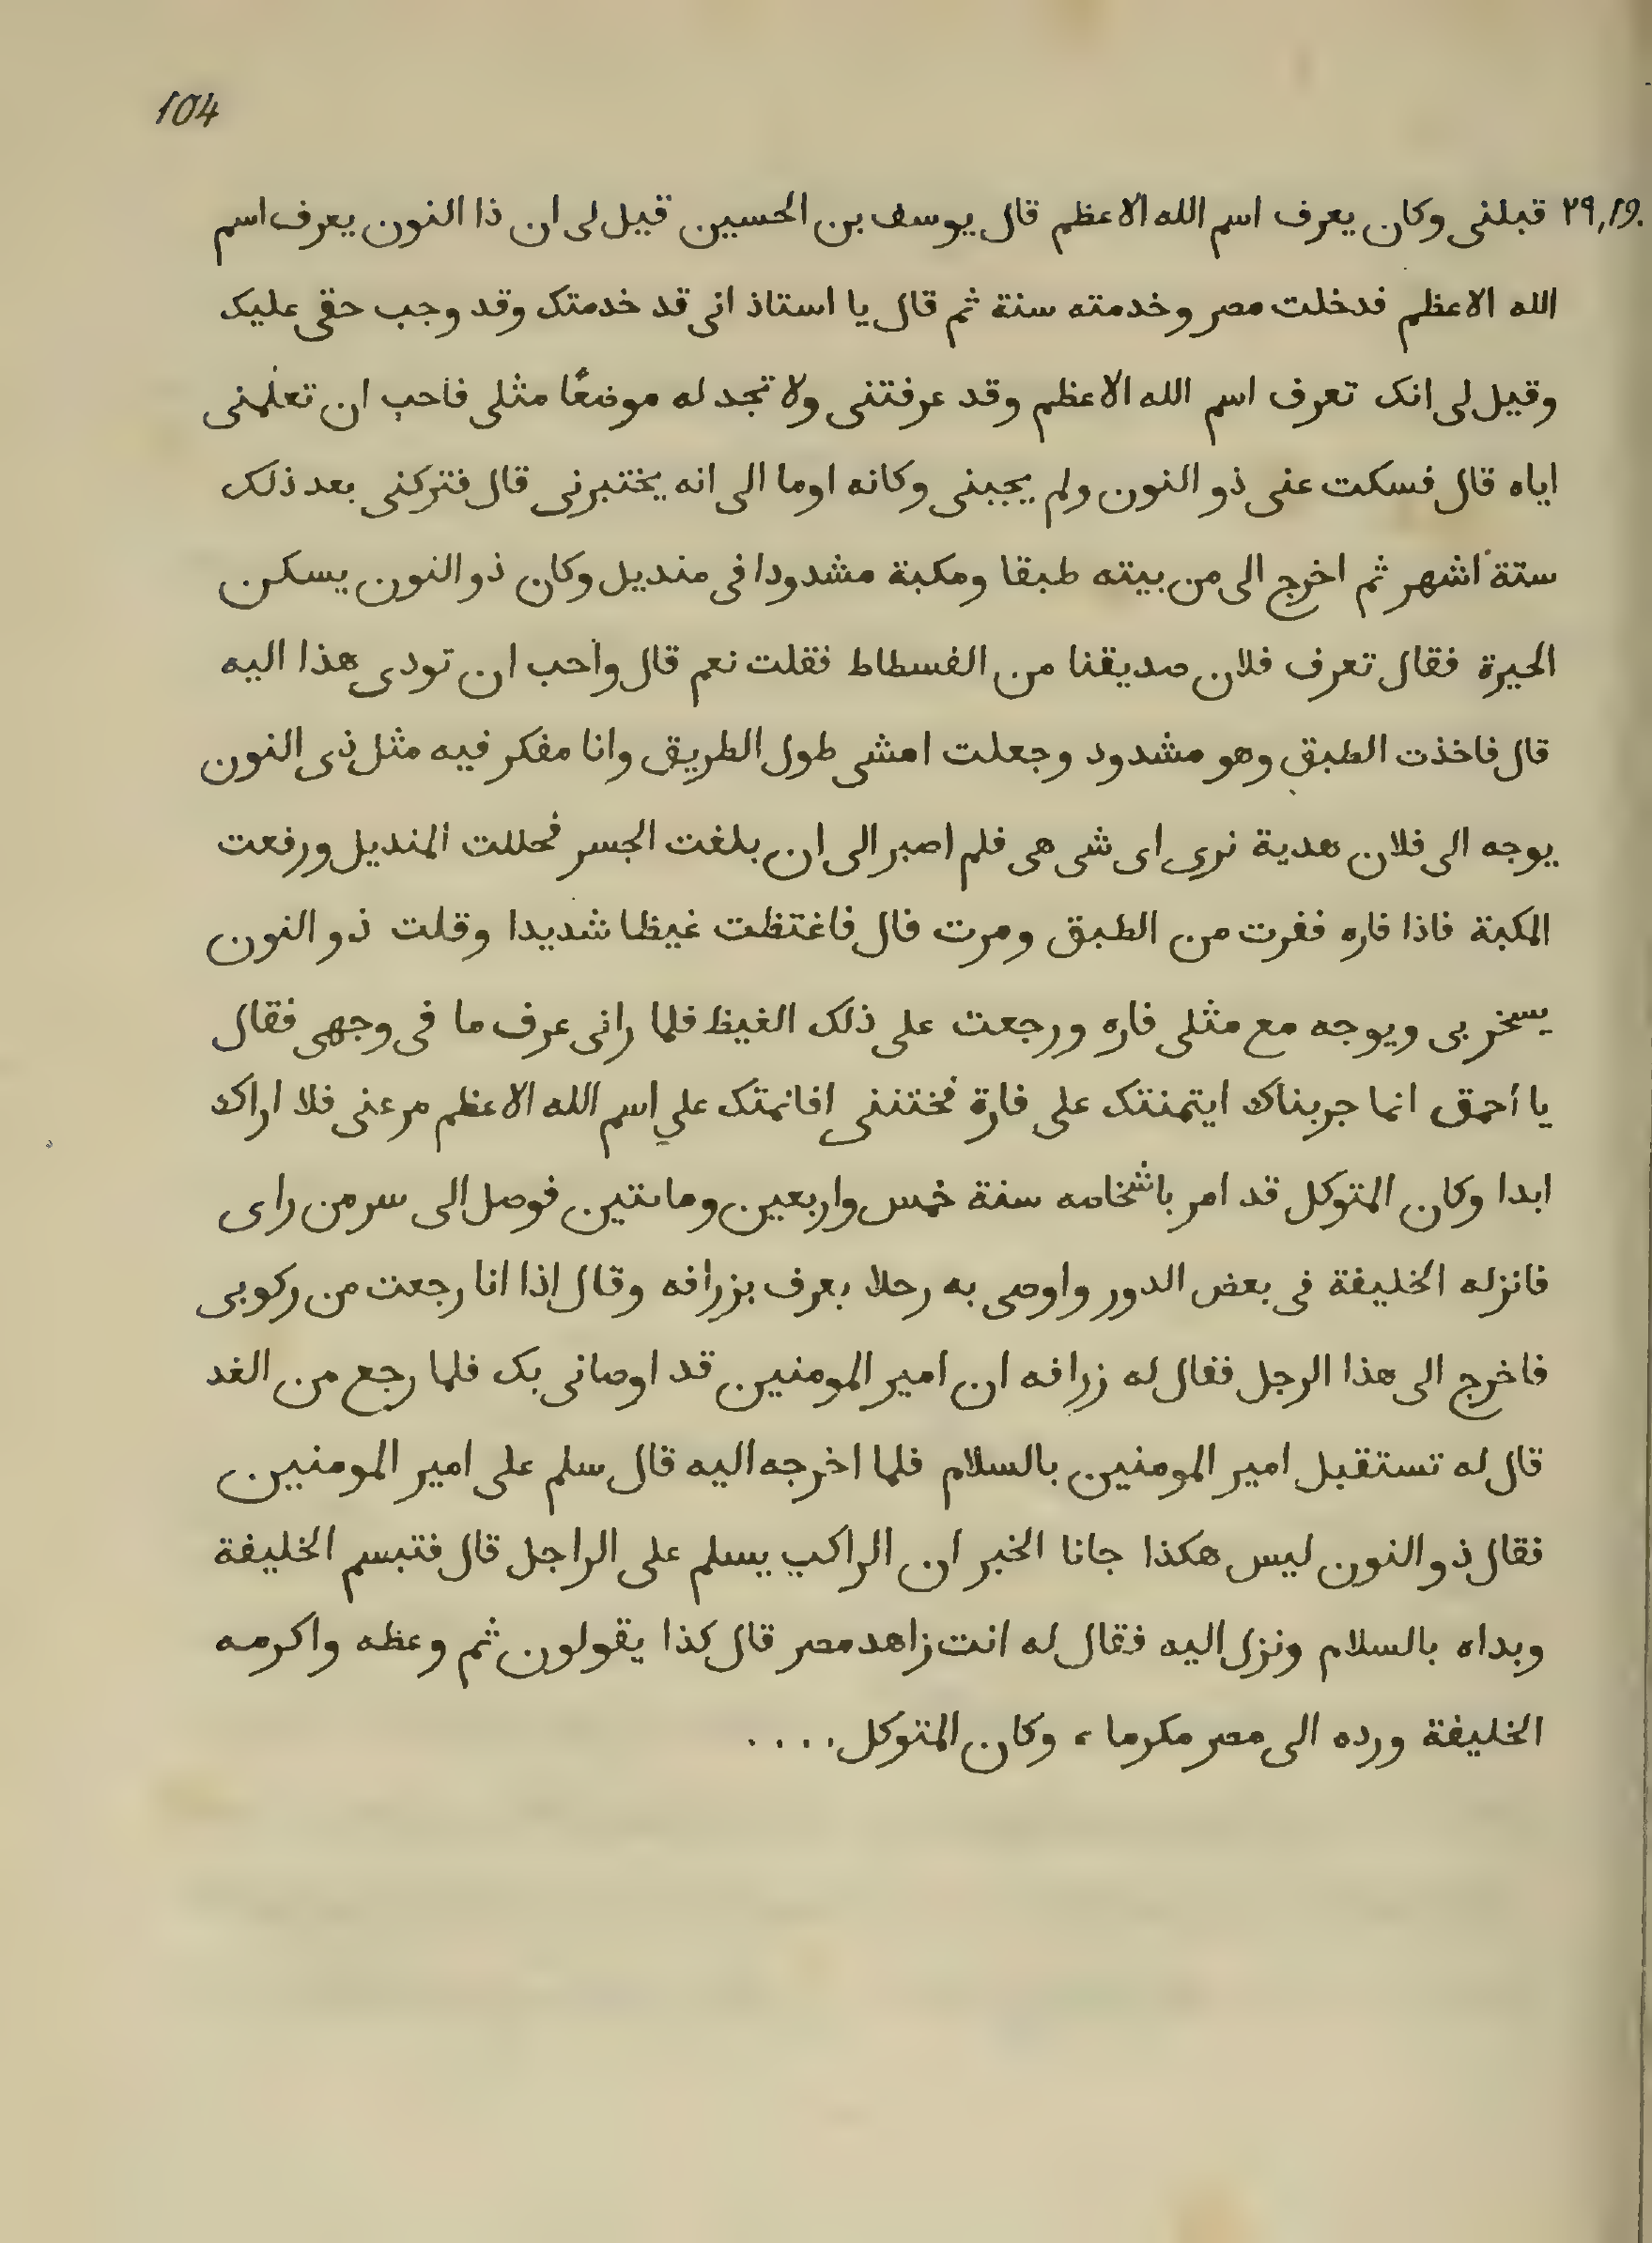 104
٢٩,١٩. قبلنى وكان يعرف اسم الله الاعظم قال يوسف بن الحسين قيل لى ان ذا النون يعرف اسم
الله الاعظم فدخلت مصر وخدمته سنة ثم قال يا استاذ انى قد خدمتك وقد وجب حقى عليك
وقيل لى انك تعرف اسم الله الاعظم وقد عرفتنى ولا تجد له موضعًا مثلى فاحب ان تعلمنى
اياه قال فسكت عنى ذو النون ولم يجبنى وكانه اوما الى انه يختبرنى قال فتركنى بعد ذلك
ستة أشهر ثم اخرج الى من بيته طبقا ومكبة مشدودا فى منديل وكان ذو النون يسكن
الحيرة فقال تعرف فلان صديقنا من الفسطاط فقلت نعم قال وأحب ان تودى هذا اليه
قال فاخذت الطبق وهو مشدود وجعلت امشى طول الطريق وانا مفكر فيه مثل ذى النون
يوجه الى فلان هدية نرى اى شى هى فلم اصبر الى ان بلغت الجسر فحللت المنديل ورفعت
المكبة فاذا فاره ففرت من الطبق ومرت فال فاغتظت غيظا شديدا وقلت ذو النون
يسخر بى ويوجه مع مثلى فاره ورجعت على ذلك الغيظ فلما رانى عرف ما فى وجهى فقال
يا أحمق انما جربناك ايتمنتك على فارة فختنى افانمتك علي اسم الله الاعظم مر عنى فلا اراك
ابدا وكان المتوكل قد امر باشخاصه سنة خمس واربعين وماىتين فوصل الى سر من راى
فانزله الخليفة فى بعض الدور واوصى به رحلا ىعرف بزرافه وقال إذا انا رجعت من ركوبى
فاخرج الى هذا الرجل ففال له زرافه ان امير المومنين قد اوصانى بك فلما رجع من الغد
قال له تستقبل امير المومنين بالسلام فلما اخرجه اليه قال سلم على امير المومنين
فقال ذو النون ليس هكذا جانا الخبر ان الراكب يسلم على الراجل قال فتبسم الخليفة
وبداه بالسلام ونزل اليه فقال له انت زاهد مصر قال كذا يقولون ثم وعظه واكرمه
الخليفة ورده الى مصر مكرما ، وكان المتوكل . . . .